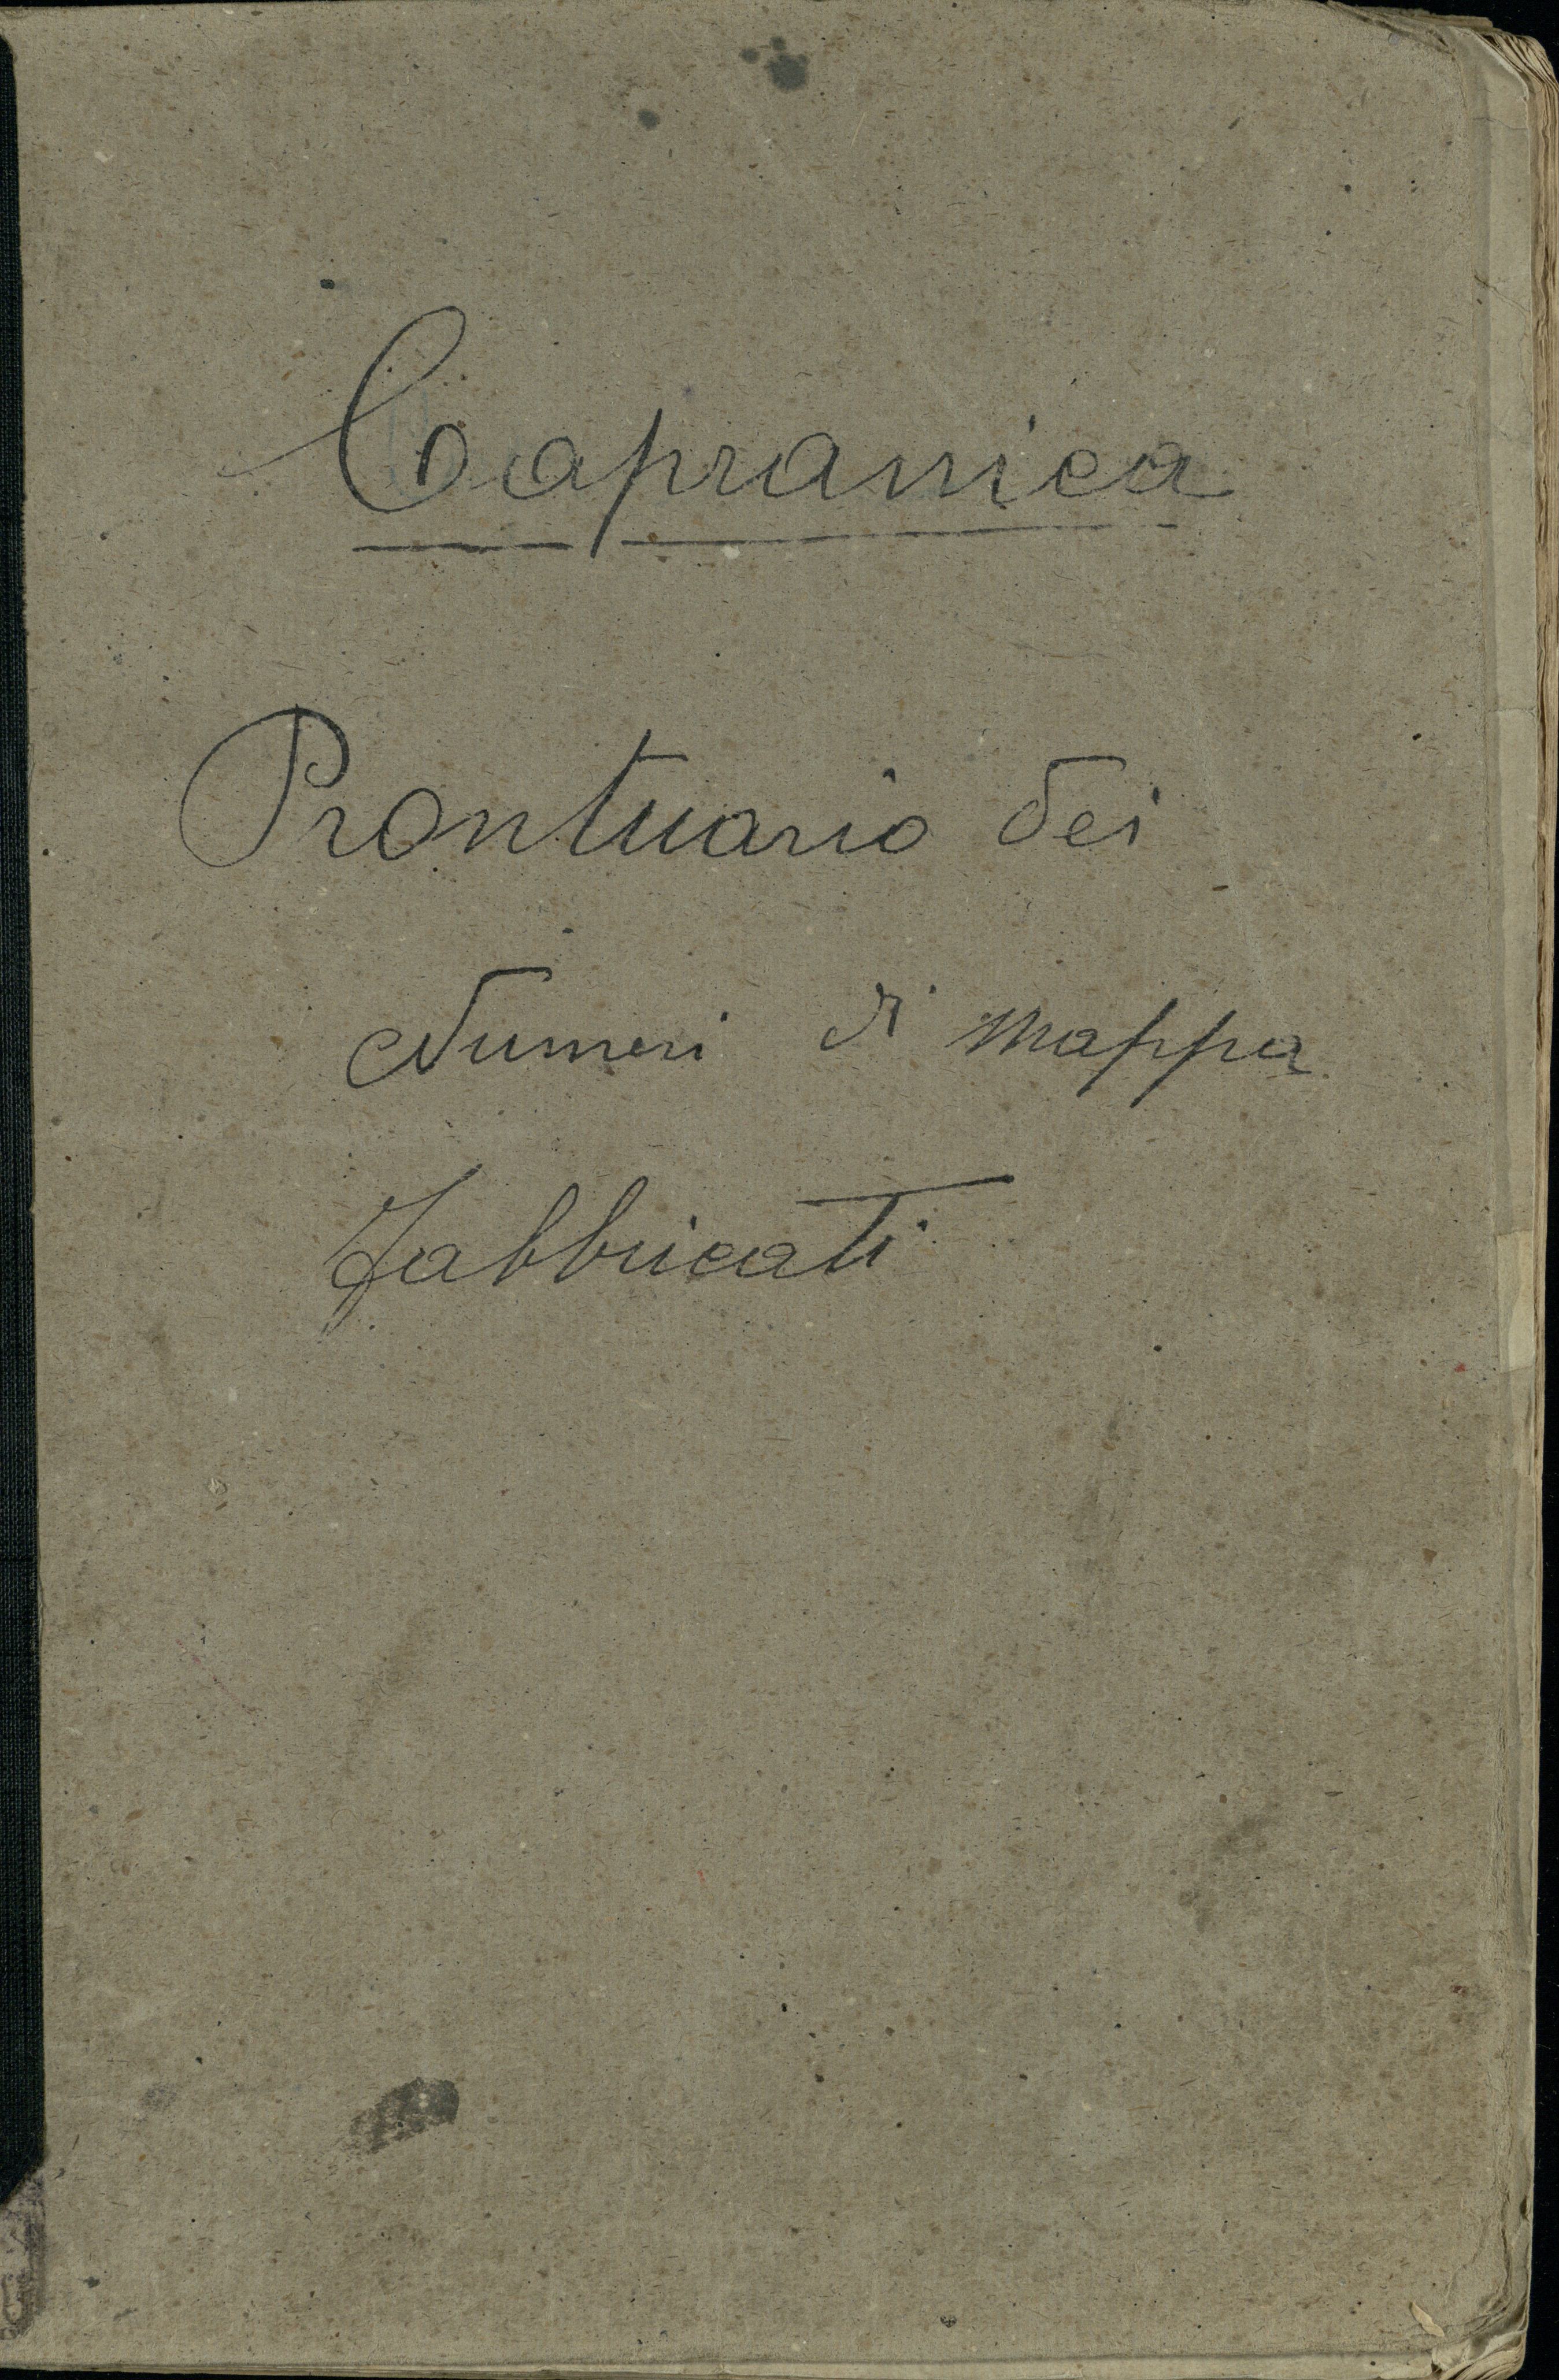 Capranica
Prontuario dei
Numeri di Mappa
Fabbricati